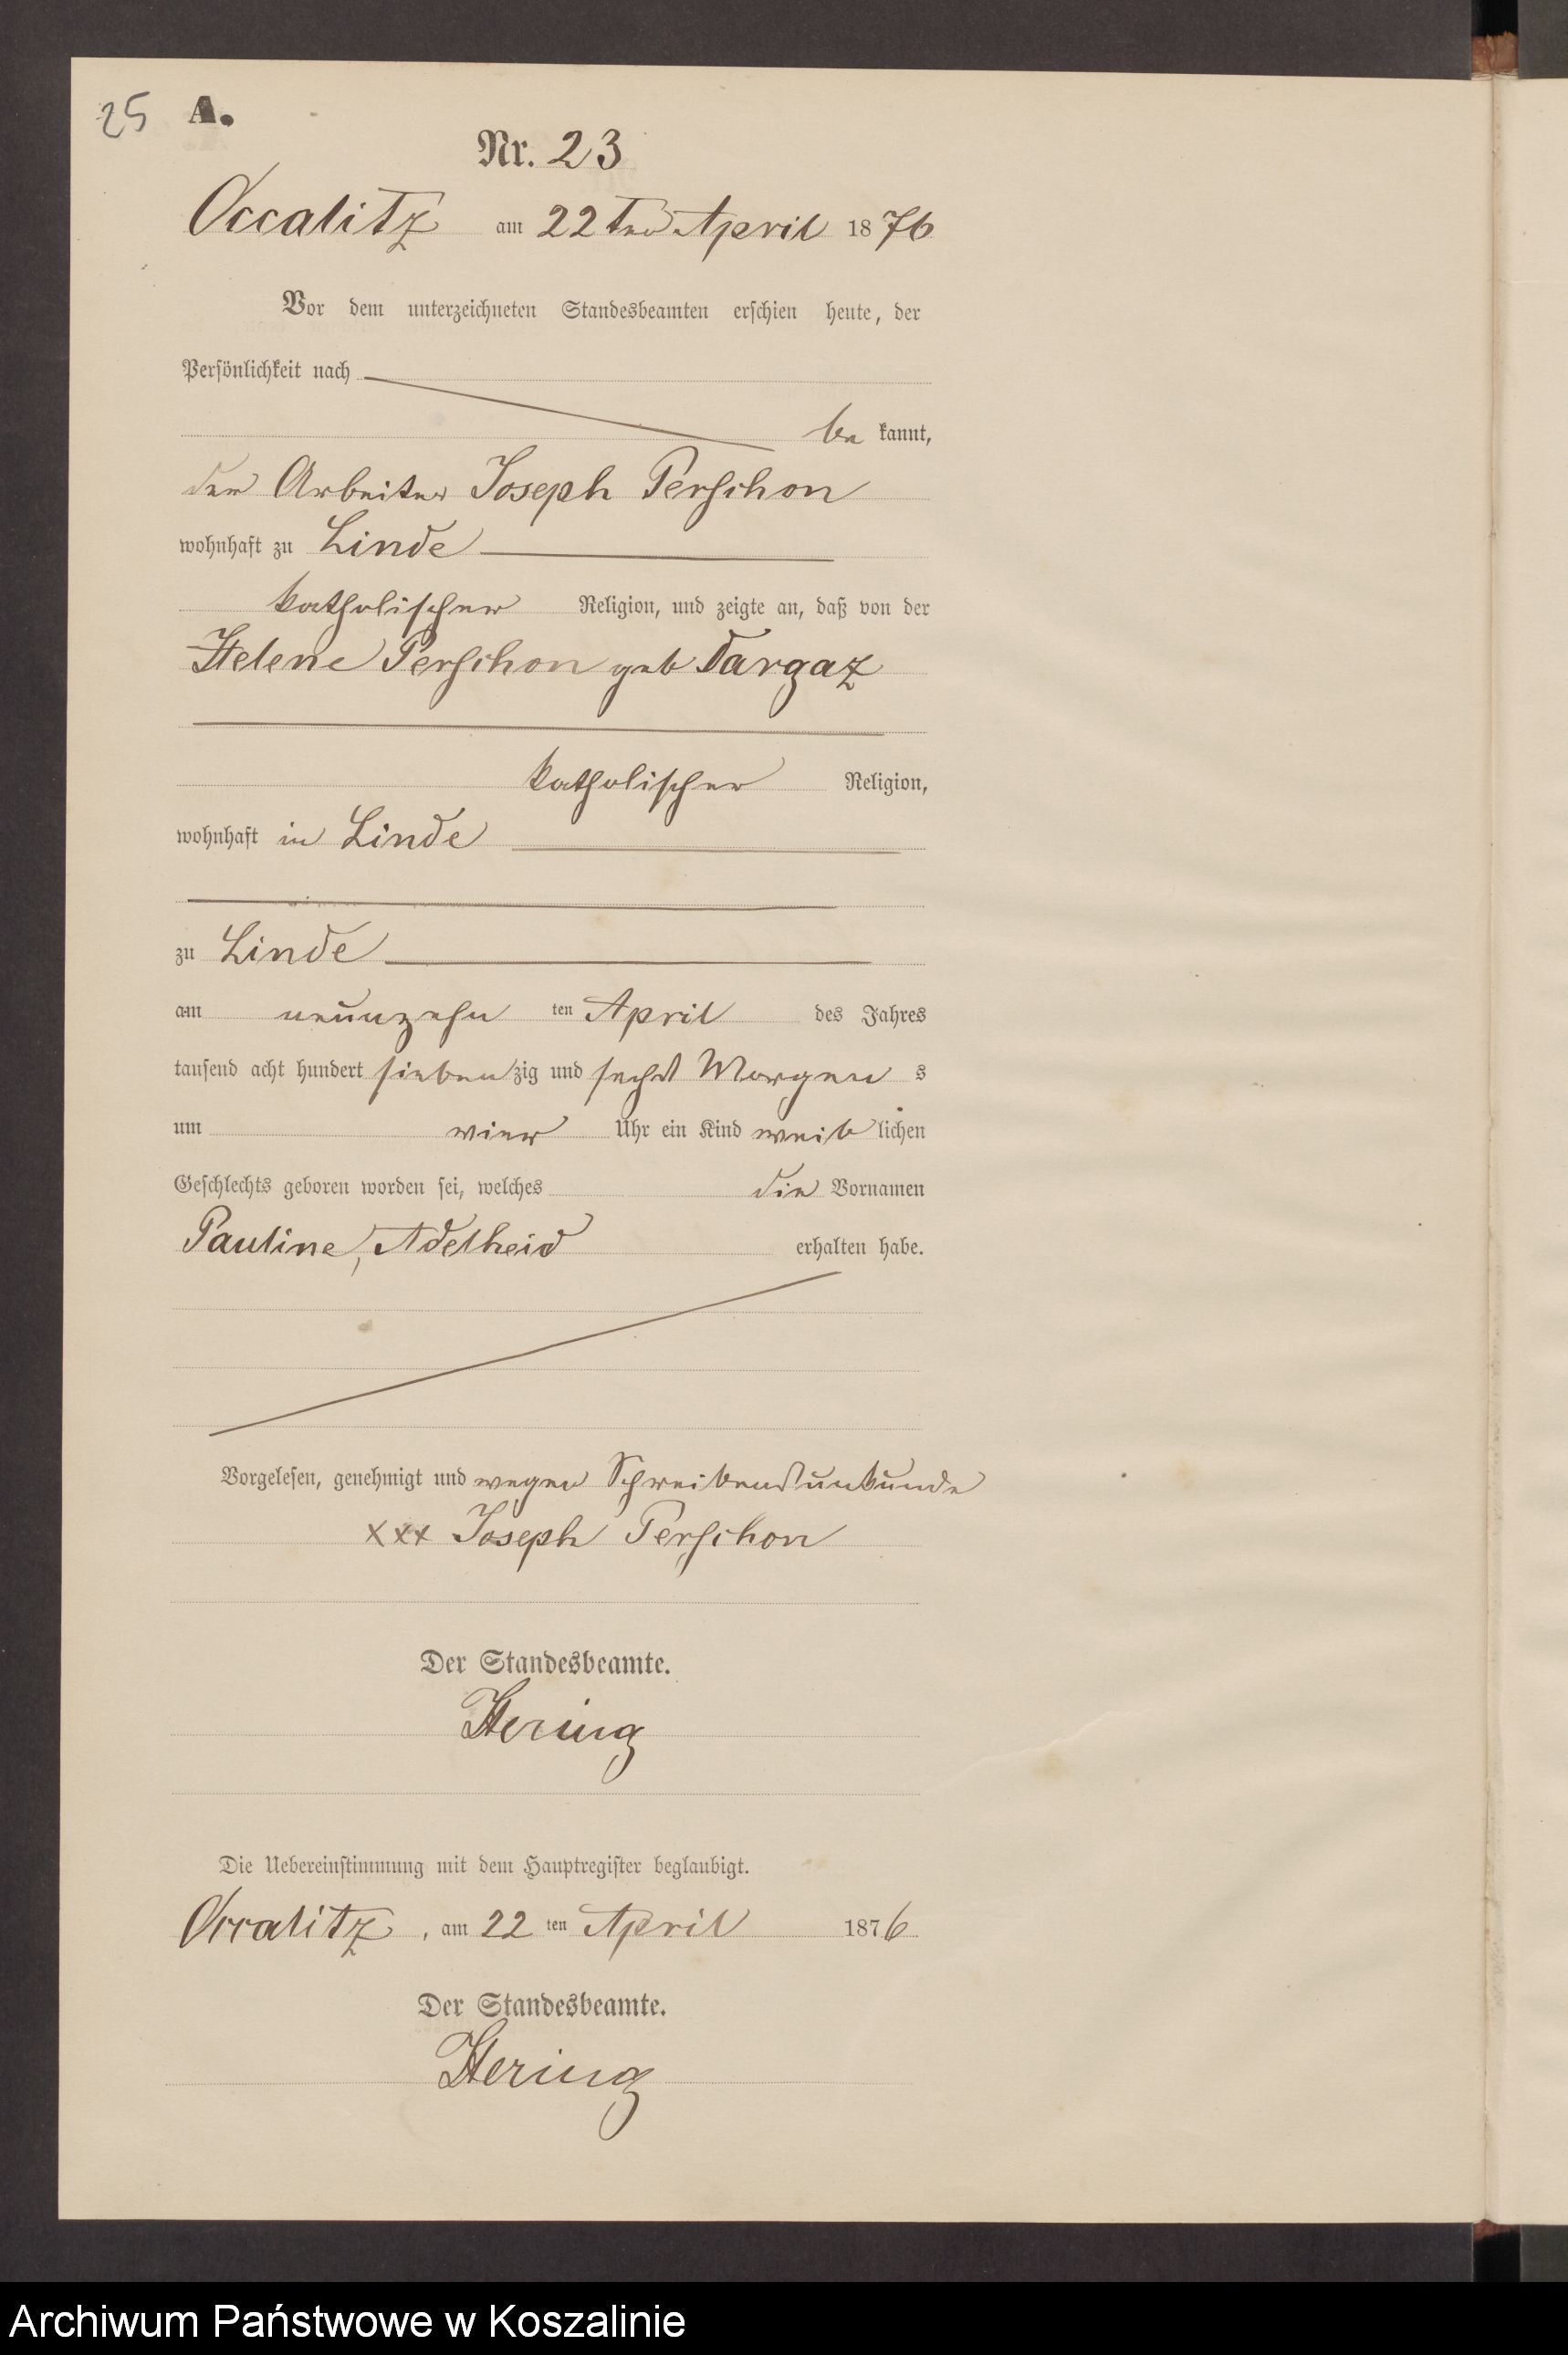 25 A.
Nr. 23
Occalitz am 22ten April 1876
Vor dem unterzeichneten Standesbeamten erschien heute, der
Persönlichkeit nach
be kannt,
der Arbeiter Joseph Perschon
wohnhaft zu Linde
katholischer Religion, und zeigte an, daß von der
Helene Perschon geb Dargaz
katholischer Religion,
wohnhaft in Linde
zu Linde
am neunzehn ten April des Jahres
tausend acht hundert siebenzig und sechs Morgen s
um vier Uhr ein Kind weib lichen
Geschlechts geboren worden sei, welches die Vornamen
Pauline, Adelheid erhalten habe.
Vorgelesen, genehmigt und wegen Schreibensunkunde
xxx Joseph Perschon
Der Standesbeamte.
Hering
Die Uebereinstimmung mit dem Hauptregister beglaubigt.
Occalitz, am 22 ten April 1876
Der Standesbeamte.
Hering
Archiwum Państwowe w Koszalinie